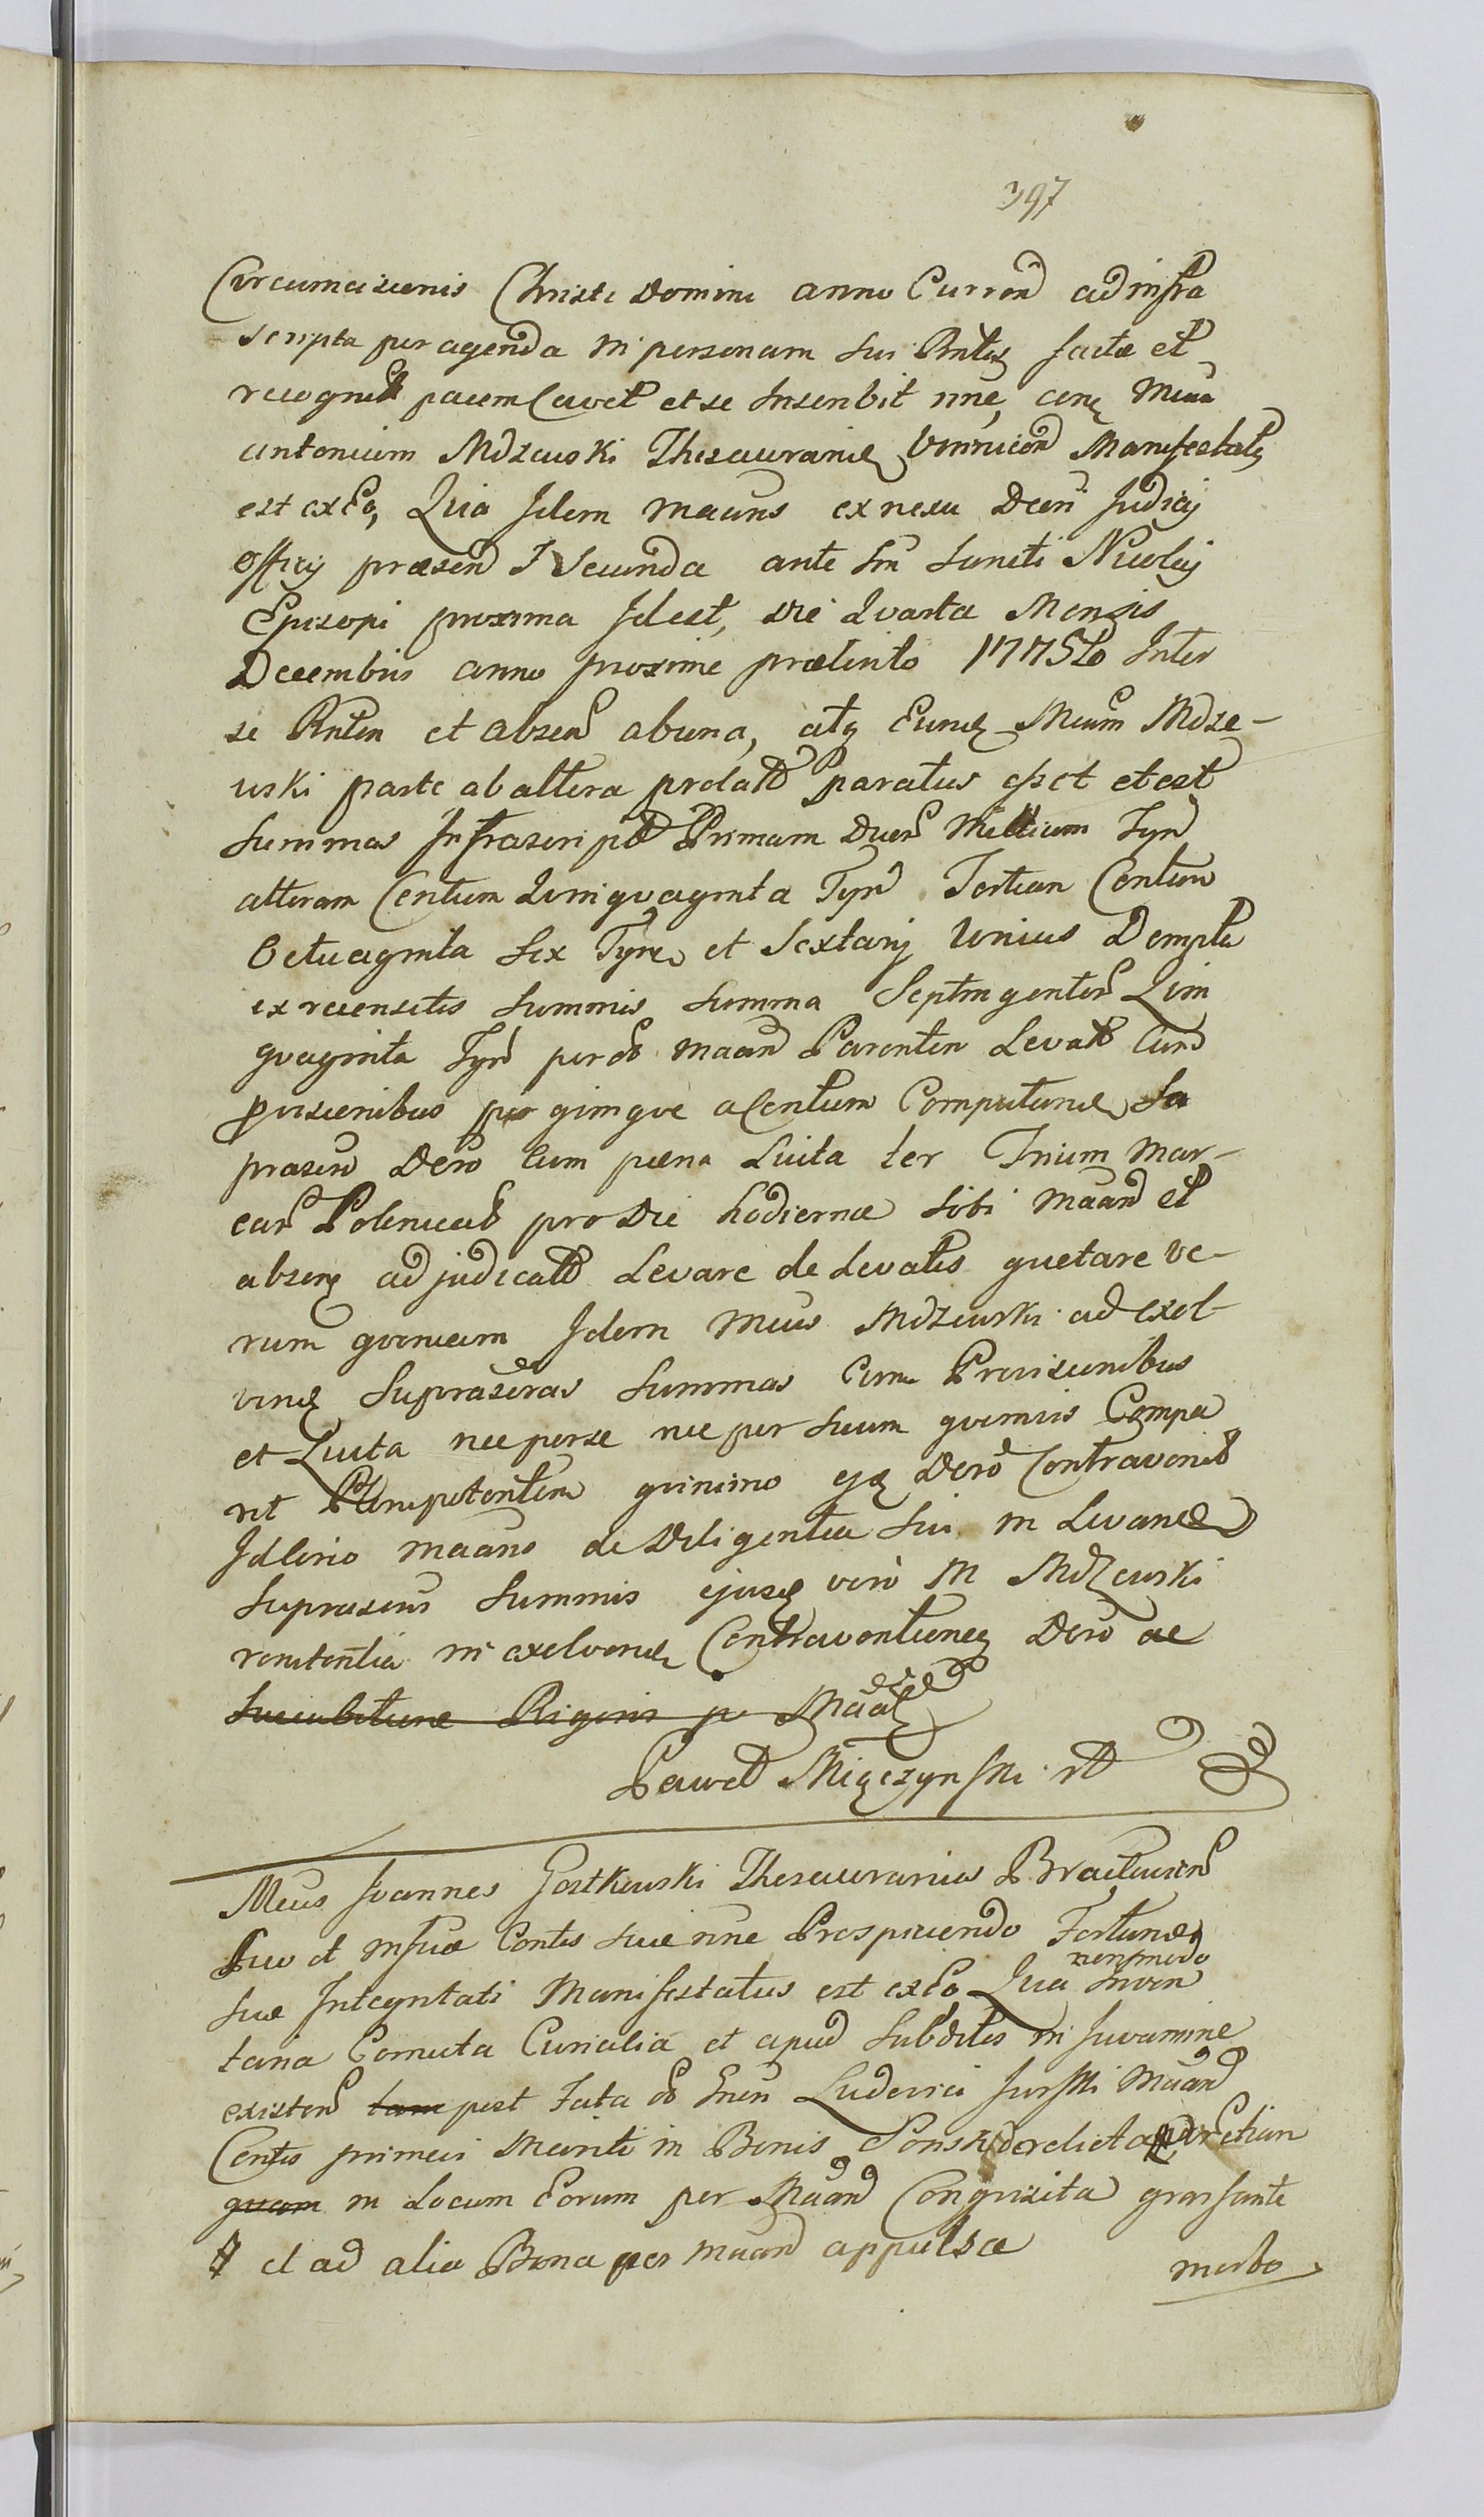 397
Circumcisionis Christi Domini anno Curren ad infra
scripta peragenda in personam sui Pntis factae et
recognit pacem Cavet et se Inscribit nne, conq Mcum
antonium Mdzewski Thesaurariu Vinnicen Manifestats
est ex Eo, Quia Idem Maans ex nexu Dcrti Judicij
Officij praesen F Secunda ante Ftm Sancti Nicolaj
Episcopi proxima Idest, die Quarta Mensis
Decembris anno proxime praeterito 1775to Inter
se Pntem et absen ab una, atq Eund Mcum Mdze-
wski parte ab altera prolato paratus esset et est
Summas Infrascriptas Primam Duor Millium Tyn
alteram Centum Quinquaginta Tyn Tertiam Centum
Octuaginta Sex Tynf et Sextarij Unius Dempta
ex recensitis Summis Summa Septingentor Quin
quaginta Tyn per olim Maand Parentem Levata Cum
provisionibus per quinque a Centum Computand La
praesen Dcro Cum paena Luita ter Trium Mar-
car Polonical pro die hodierna Sibi Maand et
absenq adjudicatas Levare de Levatis quietare ve-
rum quoniam Idem Mcus Mdzewski ad exol-
vend Suprascras Summas Cum Provisionibus
et Luita nec per se nec per Suum quemvis Compa
rit Plenipotentem quinimo ejq Dcro Contravenit
Idcirco maans de Diligentia Sui in Levand
Suprascris Summis ejusq vero M Mdzewski
renitentia in exolvend Contraventioneq Dcro ac
Succubitione Rigoris p Maatq
Paweł Mięczyński rt
Mcus Joannes Gostkowski Thesaurarius Braclavien
Suo et insuae Contis suae nne Prospiciendo Fortunar
suae Integritati Manifestatus est ex Eo, Quia non modo Inven
taria Comuta Curialia et apud Subditos in Juvamine
existen tam post Fata olim Gnen Ludovici Jurski Maand
Contis primevi Mariti in Bonis Ponski derelicta Etiam
quam in Locum Eorum per Maand Conquisita grassante
et ad alia Bona per Maand appulsa
morbo